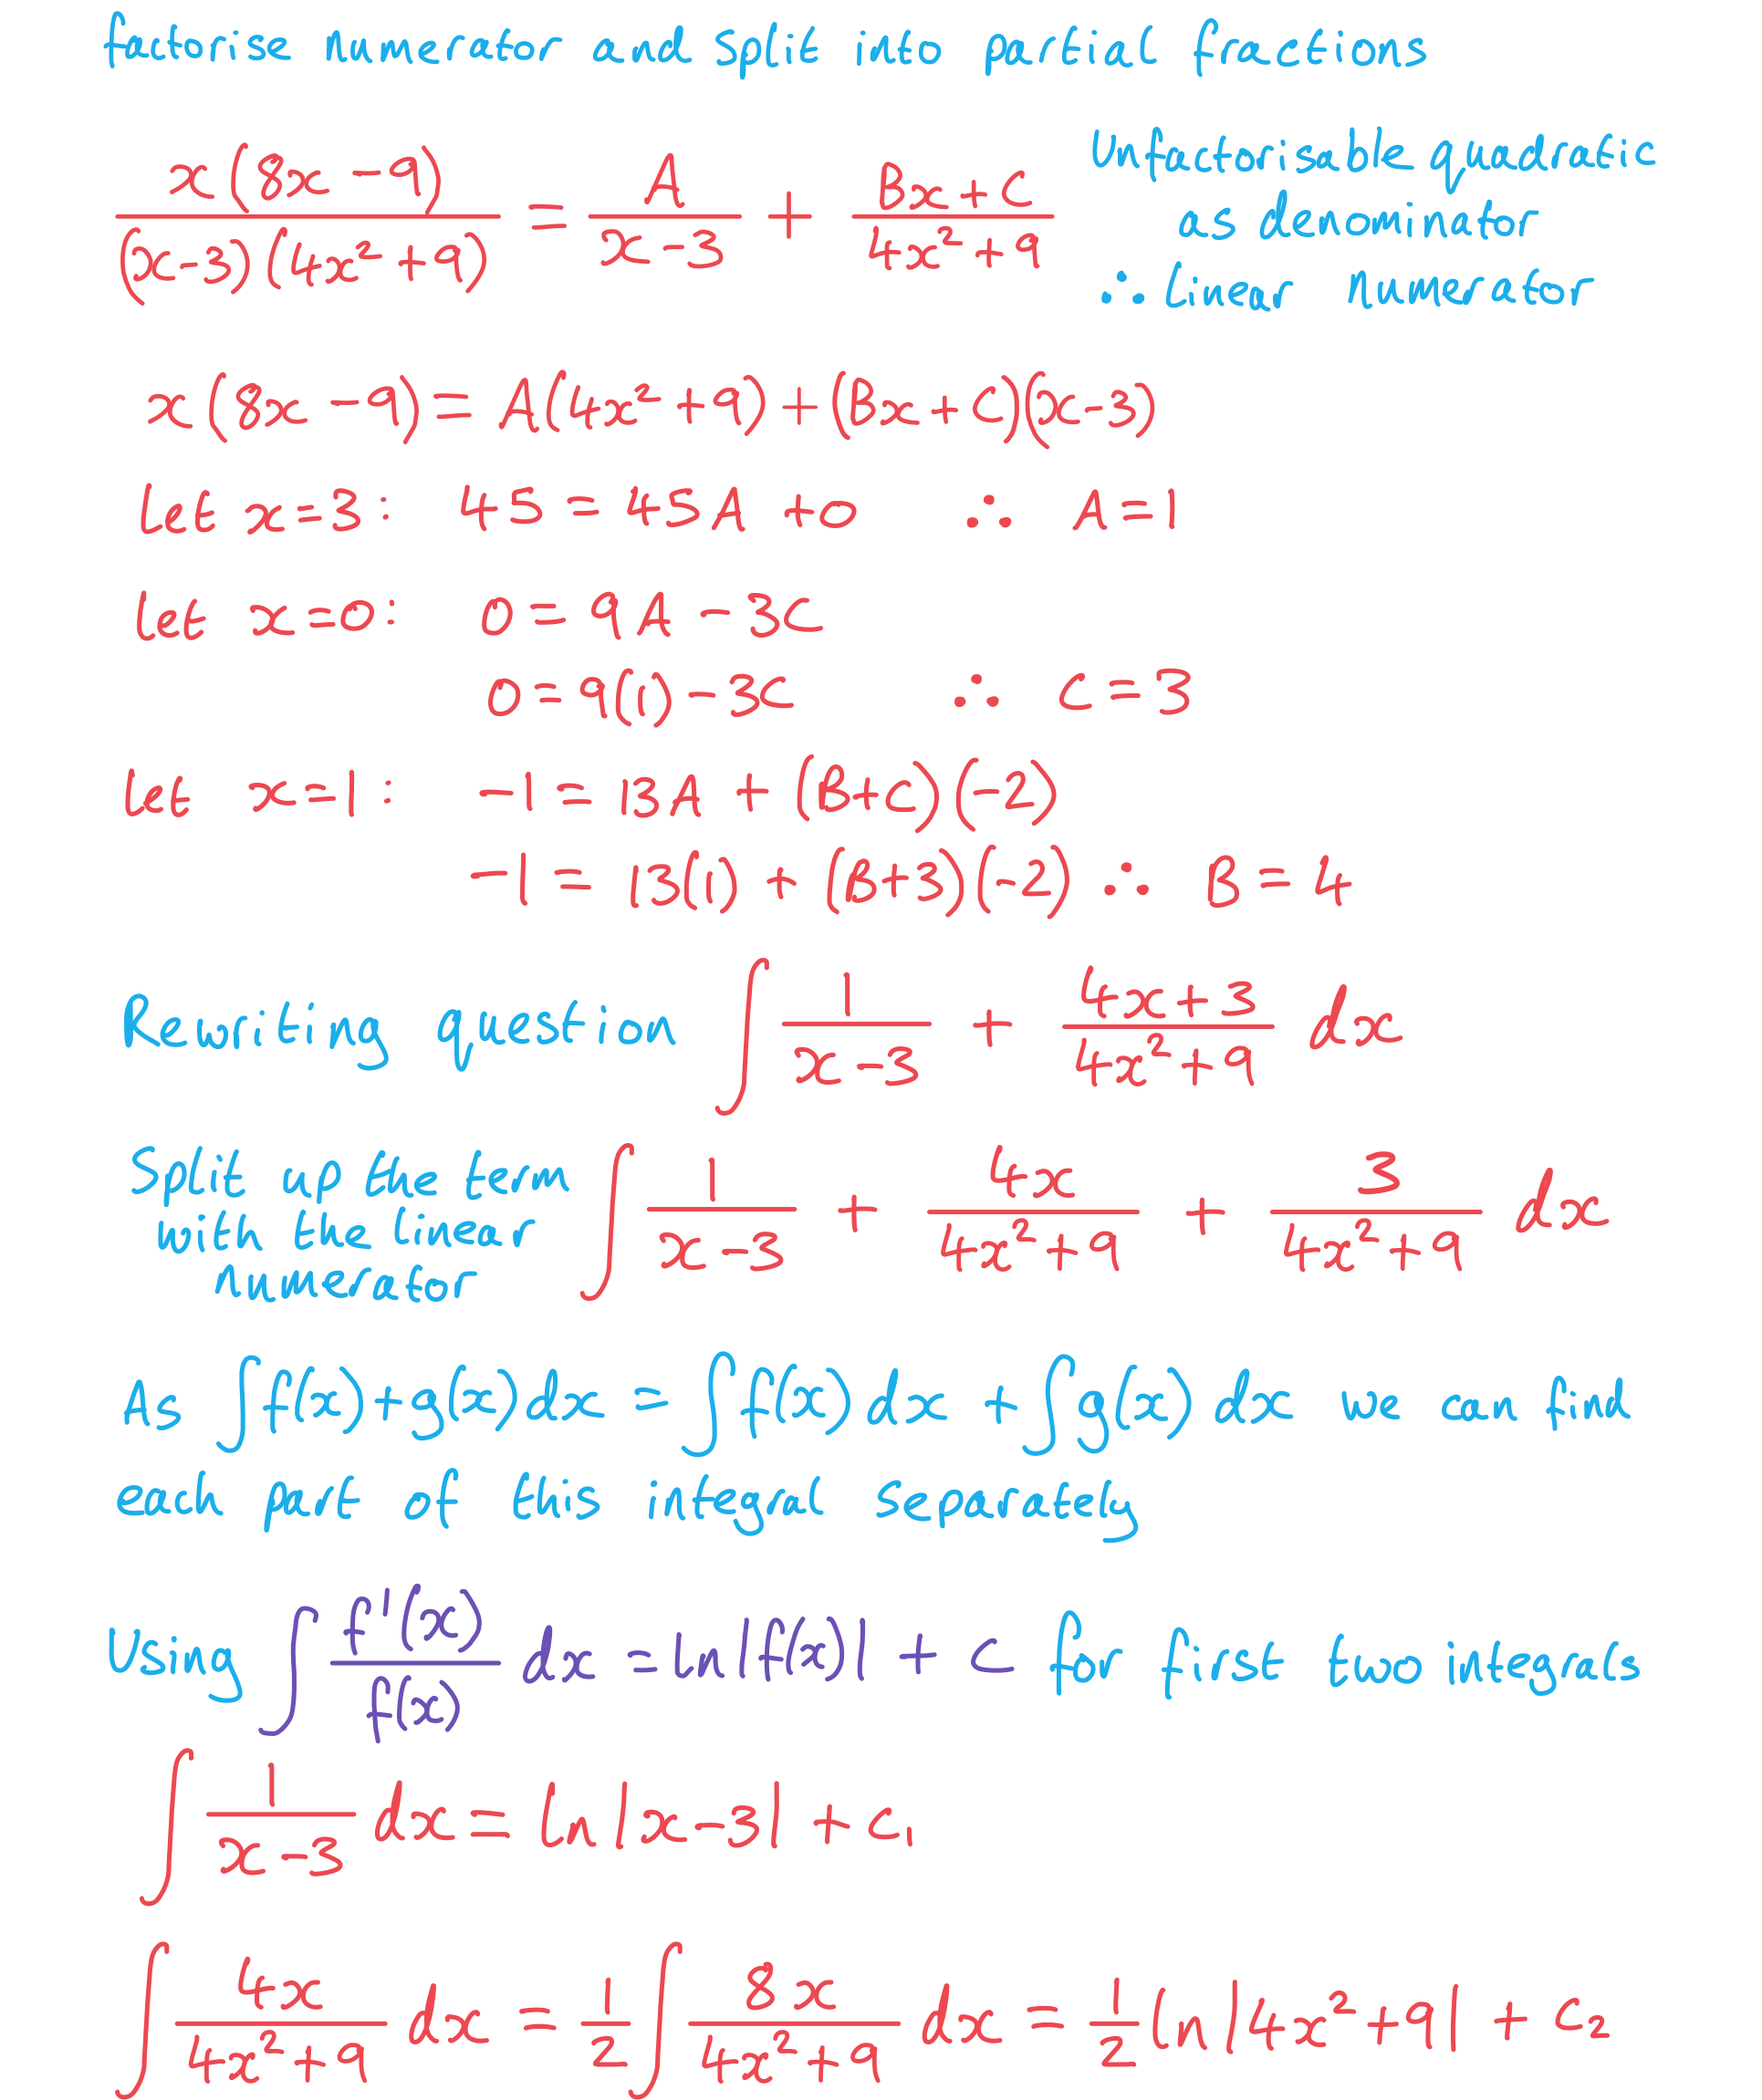 factorise numerator and split into partial fractions
x(8x - 9) / (x-3)(4x² + 9) = A / x-3 + Bx + C / 4x² + 9
Unfactorisable quadratic
as denominator
∴ linear numerator
x(8x - 9) = A(4x² + 9) + (Bx + C)(x-3)
let x=3: 45 = 45A + 0 ∴ A=1
let x=0: 0 = 9A - 3C
0 = 9(1) - 3C ∴ C = 3
let x=1: -1 = 13A + (B+C)(-2)
-1 = 13(1) + (B+3)(-2) ∴ B = 4
Rewriting question ∫ 1 / x-3 + 4x+3 / 4x²+9 dx
Split up the term
with the linear
numerator
∫ 1 / x-3 + 4x / 4x²+9 + 3 / 4x²+9 dx
As ∫f(x)+g(x)dx = ∫f(x) dx + ∫g(x)dx we can find
each part of this integral separately
Using ∫ f'(x) / f(x) dx = ln|f(x)| + C for first two integrals
∫ 1 / x-3 dx = ln|x-3| + C₁
∫ 4x / 4x²+9 dx = 1/2 ∫ 8x / 4x²+9 dx = 1/2 ln|4x²+9| + C₂